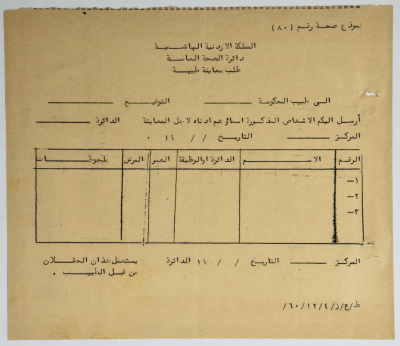 نموذج صحة رقم (٨٠)
المملكة الاردنية الهاشمية
دائرة الصحة العامة
طلب معاينة طبية
الى طبيب الحكومة التوقيع
أرسل اليكم الاشخاص المذكورة اسمائهم ادناه لاجل المعاينة الدائرة
المركز التاريخ / / ١٩
الرقم الاسم الدائرة او الوظيفة العمر المرض ملحوظات
١-
٢-
٣-
المركز التاريخ / / ١٩ الدائرة يستعمل هذان الحقلان
من قبل الطبيب .
ط/ع/ز/٦٠/١٢/٤/